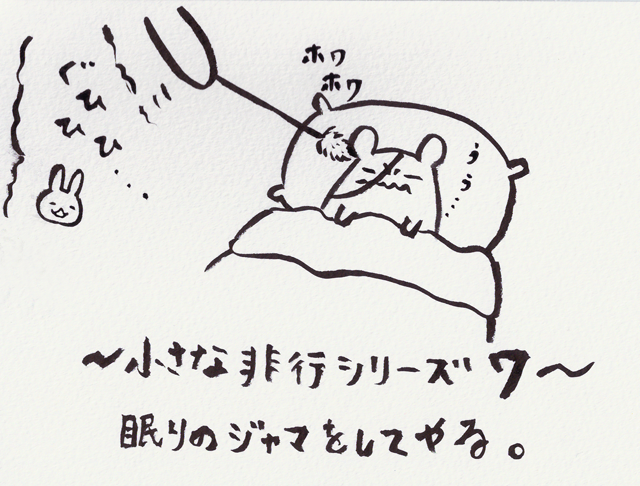 ホワ
ホワ
ぐ
ひ
ひ
ひ
・・・
うう…
～小さな非行シリーズ7～
眠りのジャマをしてやる。